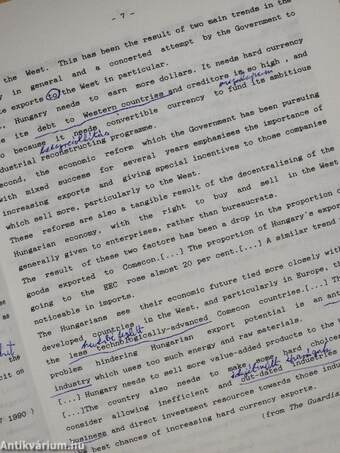 - 7 -
the West. This has been the result of two main trends in the
y in general and a concerted attempt by the Government to
e exports to the West in particular.
, Hungary needs to earn more dollars. It needs hard currency
e its debt to Western countries and creditors is so high , and
o because it needs convertible currency to fund its ambitious
dustrial reconstructing programme.
econd, the economic reform which the Government has been pursuing
with mixed success for several years emphasises the importance of
increasing exports and giving special incentives to those companies
which sell more, particularly to the West.
These reforms are also a tangible result of the decentralising of the
Hungarian economy, with the right to buy and sell in the West
generally given to enterprises, rather than bureaucrats.
The result of these two factors has been a drop in the proportion o
goods exported to Comecon.[...] The proportion of Hungary's expor
going to the EEC rose almost 20 per cent.[...] A similar trend
noticeable in imports.
The Hungarians see their economic future tied more closely with
developed countries in the West, and particularly in Europe, th
the less technologically-advanced Comecon countries.[...] Th
problem hindering Hungarian export potential is an ant
industry which uses too much energy and raw materials.
[...] Hungary needs to sell more value-added products to the
[...]The country also needs to make some hard choices
consider allowing inefficient and out-dated industries
business and direct investment resources towards those indu
e best chances of increasing hard currency exports.
(from The Guardia
it on
y 1990 )
Antikvárium.hu